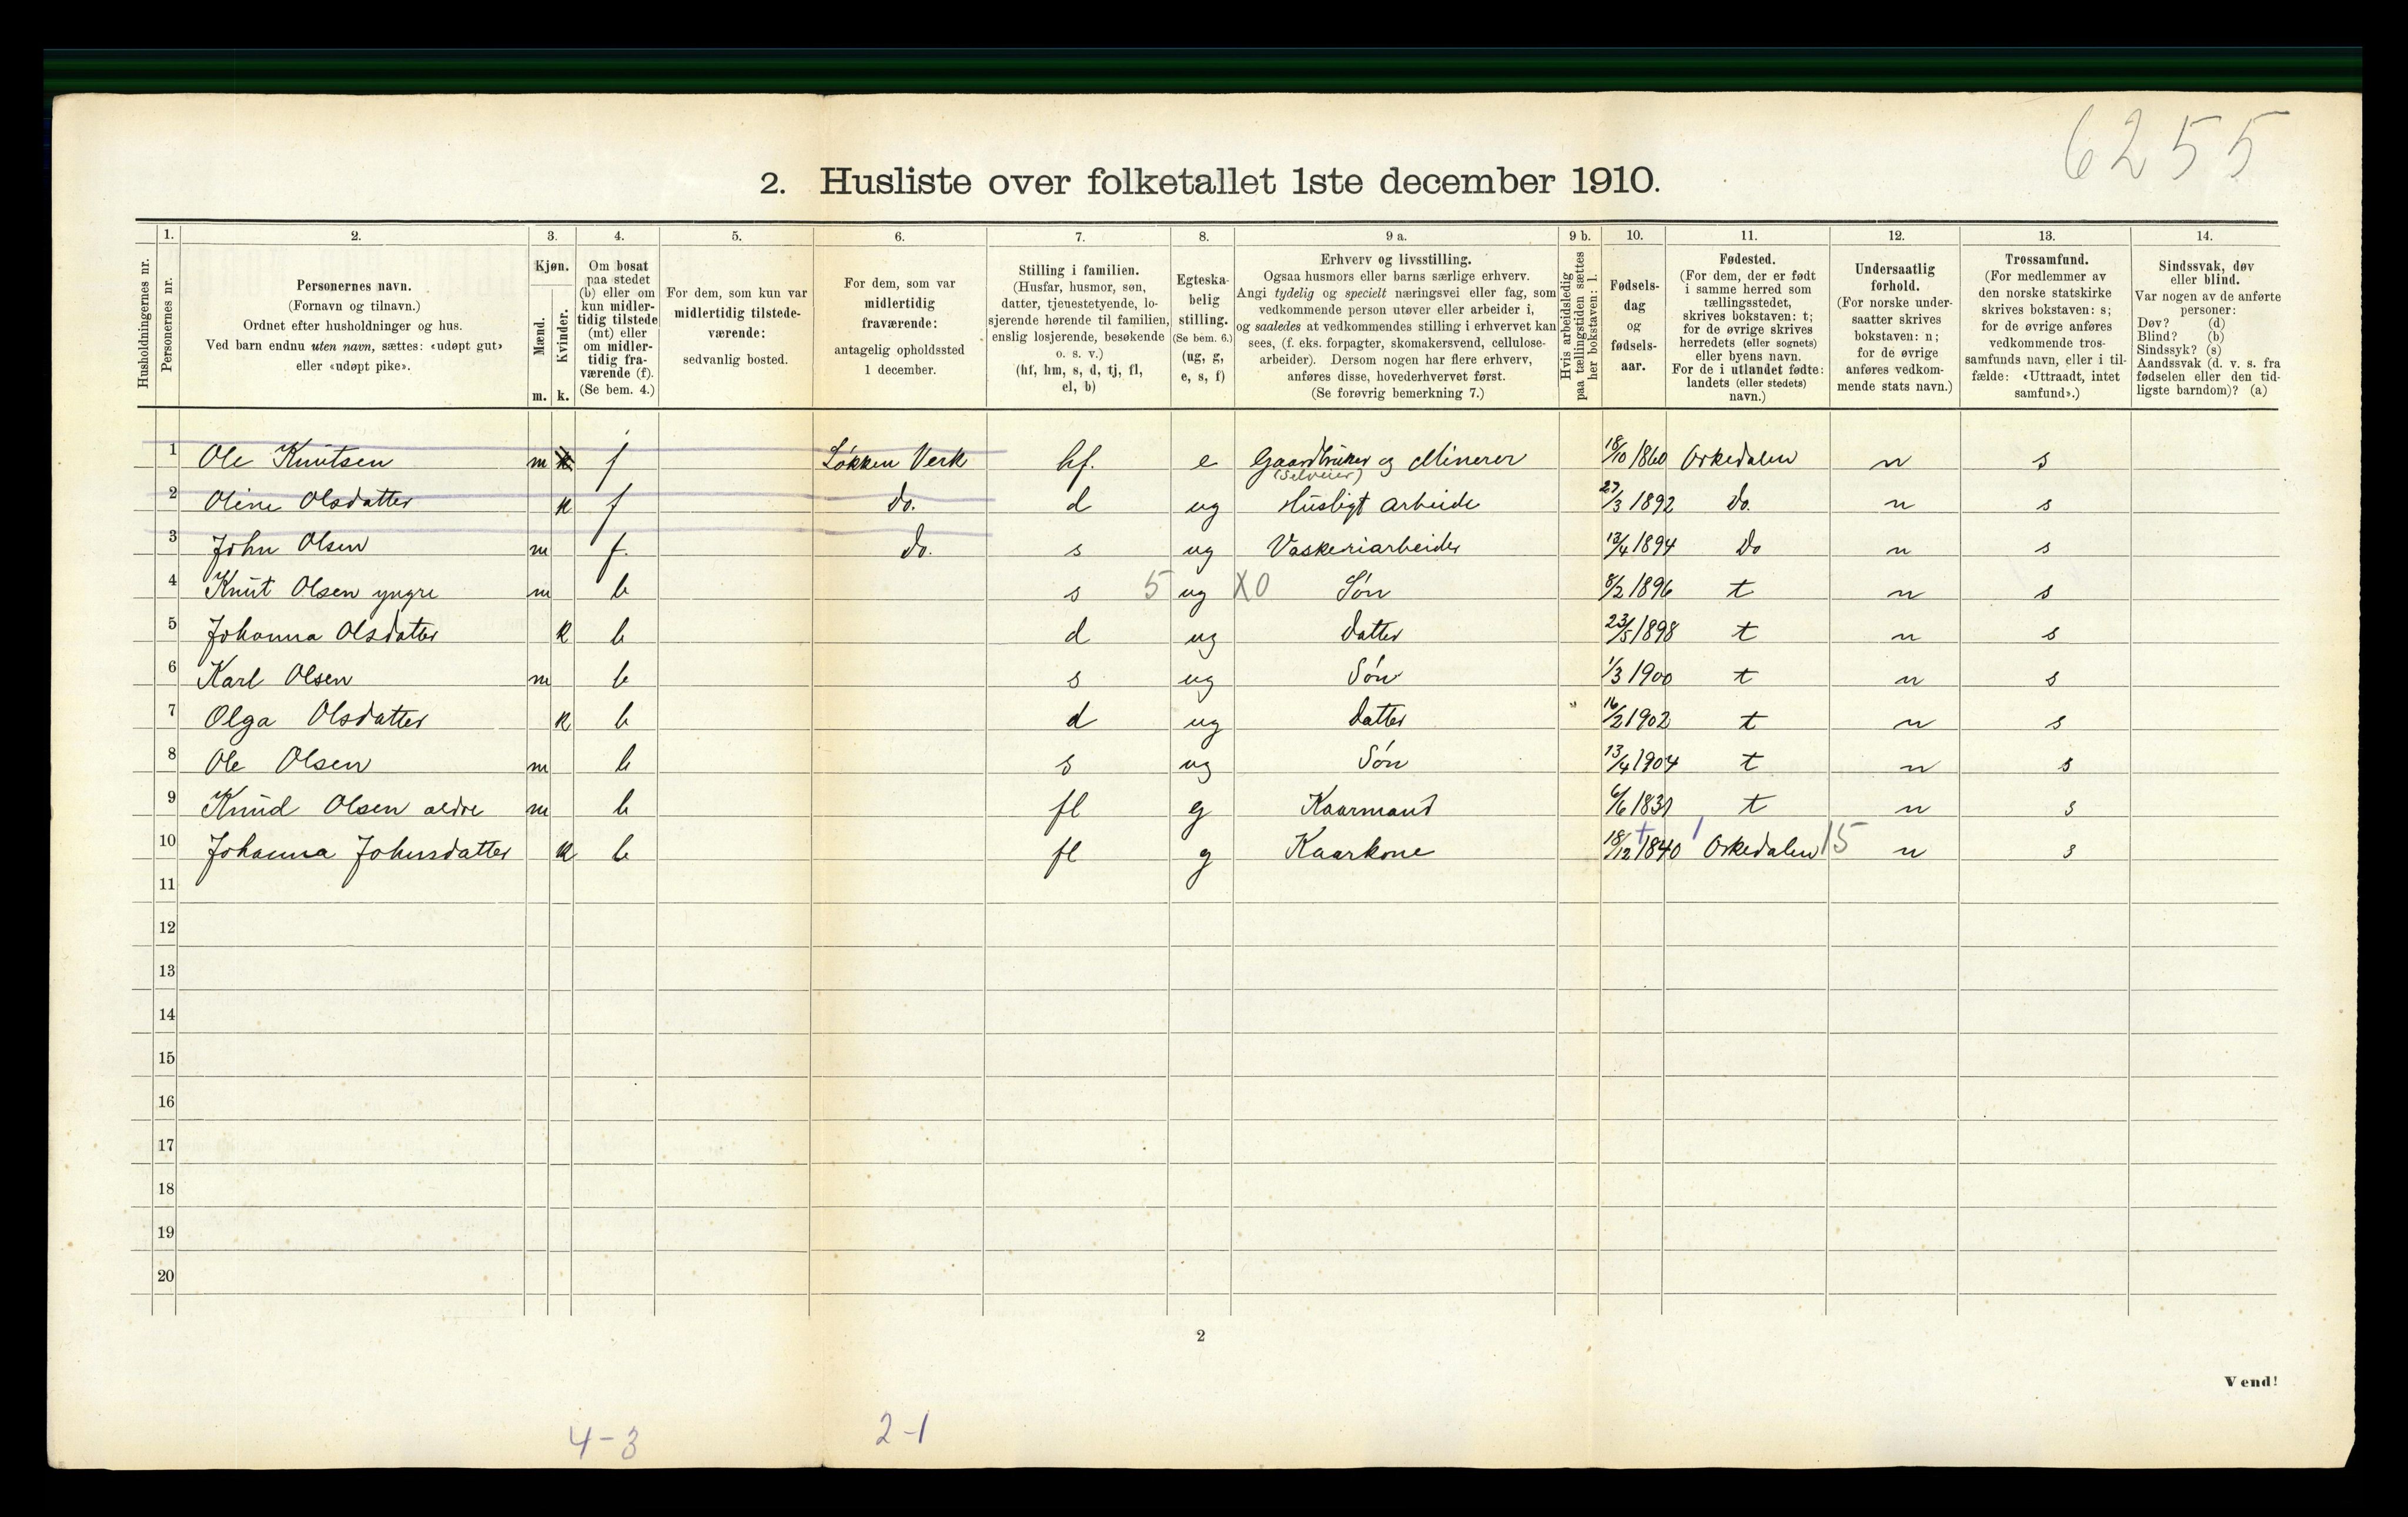 6255
2. Husliste over folketallet 1ste december 1910.
Husholdningernes nr.
1. Personernes nr.
2. Personernes navn.
(Fornavn og tilnavn.)
Ordnet efter husholdninger og hus.
Ved barn endnu uten navn, sættes: «udøpt gut»
eller «udøpt pike».
3. Kjøn.
Mænd. Kvinder.
m. k.
4. Om bosat
paa stedet
(b) eller om
kun midler-
tidig tilstede
(mt) eller
om midler-
tidig fra-
værende (f).
(Se bem. 4.)
5. For dem, som kun var
midlertidig tilstede-
værende:
sedvanlig bosted.
6. For dem, som var
midlertidig
fraværende:
antagelig opholdssted
1 december.
7. Stilling i familien.
(Husfar, husmor, søn,
datter, tjenestetyende, lo-
sjerende hørende til familien,
enslig losjerende, besøkende
o. s. v.)
(hf, hm, s, d, tj, fl,
el, b)
8. Egteska-
belig
stilling.
(Se bem. 6.)
(ug, g,
e, s, f)
9 a. Erhverv og livsstilling.
Ogsaa husmors eller barns særlige erhverv.
Angi tydelig og specielt næringsvei eller fag, som
vedkommende person utøver eller arbeider i,
og saaledes at vedkommendes stilling i erhvervet kan
sees, (f. eks. forpagter, skomakersvend, cellulose-
arbeider). Dersom nogen har flere erhverv,
anføres disse, hovederhvervet først.
(Se forøvrig bemerkning 7.)
9 b. Hvis arbeidsledig
paa tællingstiden sættes
her bokstaven: l.
10. Fødsels-
dag
og
fødsels-
aar.
11. Fødested.
(For dem, der er født
i samme herred som
tællingsstedet,
skrives bokstaven: t;
for de øvrige skrives
herredets (eller sognets)
eller byens navn.
For de i utlandet fødte:
landets (eller stedets)
navn.)
12. Undersaatlig
forhold.
(For norske under-
saatter skrives
bokstaven: n;
for de øvrige
anføres vedkom-
mende stats navn.)
13. Trossamfund.
(For medlemmer av
den norske statskirke
skrives bokstaven: s;
for de øvrige anføres
vedkommende tros-
samfunds navn, eller i til-
fælde: «Uttraadt, intet
samfund».)
14. Sindssvak, døv
eller blind.
Var nogen av de anførte
personer:
Døv? (d)
Blind? (b)
Sindssyk? (s)
Aandssvak (d. v. s. fra
fødselen eller den tid-
ligste barndom)? (a)
1 Ole Knutsen m k f Løkken Verk hf. e Gaardbruker og Minerer 18/10 1860 Orkedalen n s
(Selveier)
2 Oline Olsdatter k f do. d ug Husligt arbeide 27/3 1892 do. n s
3 John Olsen m f. do. s ug Vaskeriarbeider 13/4 1894 do n s
4 Knut Olsen yngre m b s 5 ug X0 Søn 8/2 1896 t n s
5 Johanna Olsdatter k b d ug datter 23/5 1898 t n s
6 Karl Olsen m b s ug Søn 1/3 1900 t n s
7 Olga Olsdatter k b d ug datter " 16/2 1902 t n s
8 Ole Olsen m b s ug Søn 13/4 1904 t n s
9 Knud Olsen ældre m b fl g Kaarmand 6/6 t n s
10 Johanna Johnsdatter k b fl g Kaarkone 18/12 1840 Orkedalen 15 n s
11
12
13
14
15
16
17
18
19
20
2
Vend!
4-3 2-1